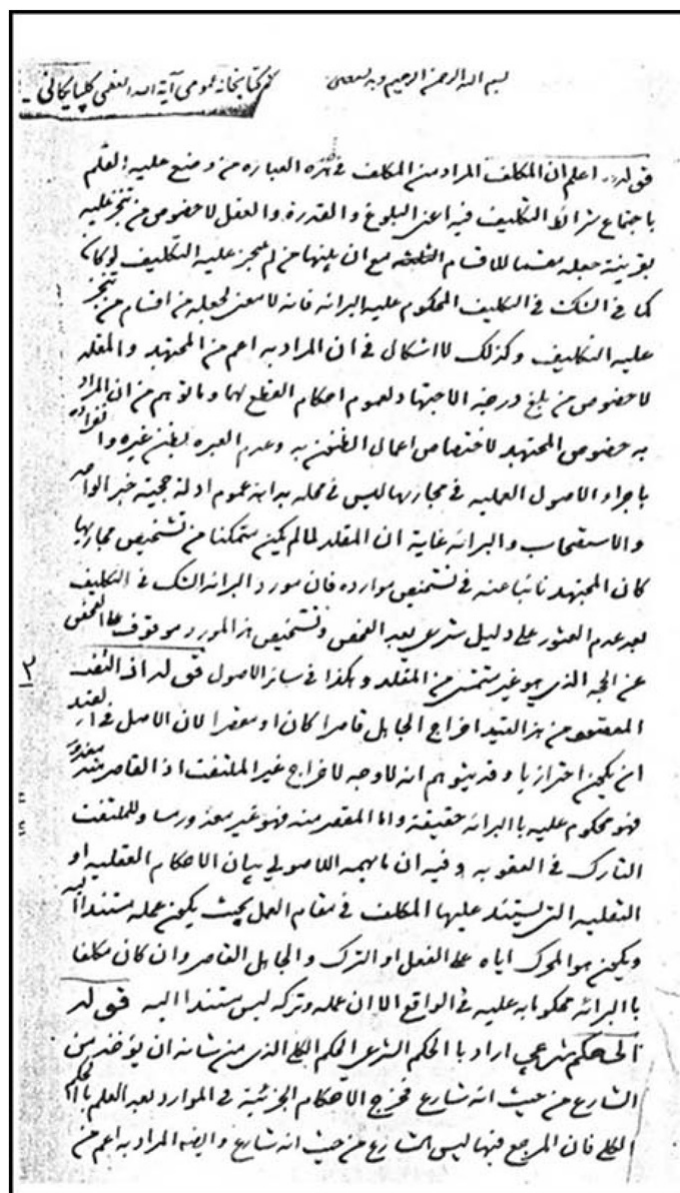 بسم الله الرحمن الرحيم وبه نستعين
كتابخانه عمومى آية الله العظمى گلپايگانى
قوله اعلم ان المكلف المراد من المكلف فى هذه العباره من وضع عليه القلم
باجتماع شرائط التكليف فيه اعنى البلوغ والقدرة والعقل لا خصوص من تنجز عليه
بقرينة جعله مقسما للاقسام الثلثه مع ان بينها من لم يتنجز عليه التكليف لو كان
كما فى الشك فى التكليف المحكوم عليه بالبرائه فانه لا معنى لجعله من اقسام من تنجز
عليه التكليف وكذلك لا اشكال فى ان المراد به اعم من المجتهد والمقلد
لا خصوص من بلغ درجة الاجتهاد لعموم احكام القطع لهما وما توهم من ان المراد
به خصوص المجتهد لاختصاص اعمال الظنون به وعدم العبره بظن غيره وانفراده
باجراء الاصول العمليه فى مجاريها ليس فى محله بداهة عموم ادلة حجية خبر الواحد
والاستصحاب والبرائه غاية ان المقلد لما لم يكن متمكنا من تشخيص مجاريها
كان المجتهد نائبا عنه فى تشخيص موارده فان مورد البرائه الشك فى التكليف
بعد عدم العثور على دليل شرعى بعد الفحص وتشخيص هذا المورد موقوف على الفحص
عن الجه الذى هو غير متمش من المقلد وهكذا فى سائر الاصول قوله اذا التفت
المقصود من هذا القيد اخراج الجاهل قاصرا كان او مقصرا لان الاصل فى القيد
ان يكون احترازيا وقد يتوهم انه لا وجه لاخراج غير الملتفت اذ القاصر منه معذور
فهو محكوم عليه بالبرائه حقيقة واما المقصر منه فهو غير معذور مساو للملتفت
التارك فى العقوبه وفيه ان ما يهم الاصولى بيان الاحكام العقليه او
النقليه التى يستند عليها المكلف فى مقام العمل بحيث يكون عمله مستندا اليه
ويكون هو المحرك اياه على الفعل او الترك والجاهل القاصر وان كان مكلفا
بالبرائه محكوما به عليه فى الواقع الا ان عمله وتركه ليس مستندا اليه قوله
الى حكم شرعى اراد بالحكم الشرعى الحكم الكلى الذى من شانه ان يؤخذ من
الشارع من حيث انه شارع فخرج الاحكام الجزئية فى الموارد بعد العلم بالحكم
الكلى فان المرجع فيها ليس الشارع من حيث انه شارع وايضا المراد به اعم من
٢